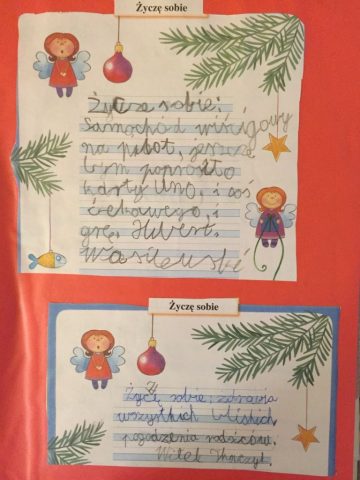 Życzę sobie
Życze sobie:
Samochód wiścigowy
na pilot, jeszcze
bym poprosił o
karty Uno, i coś
ciekawego, i
grę. Hubert.
Wasilewski
Życzę sobie
Życzę sobie: zdrowia
wszystkich bliskich
pogodzenia rodziców.
Witek